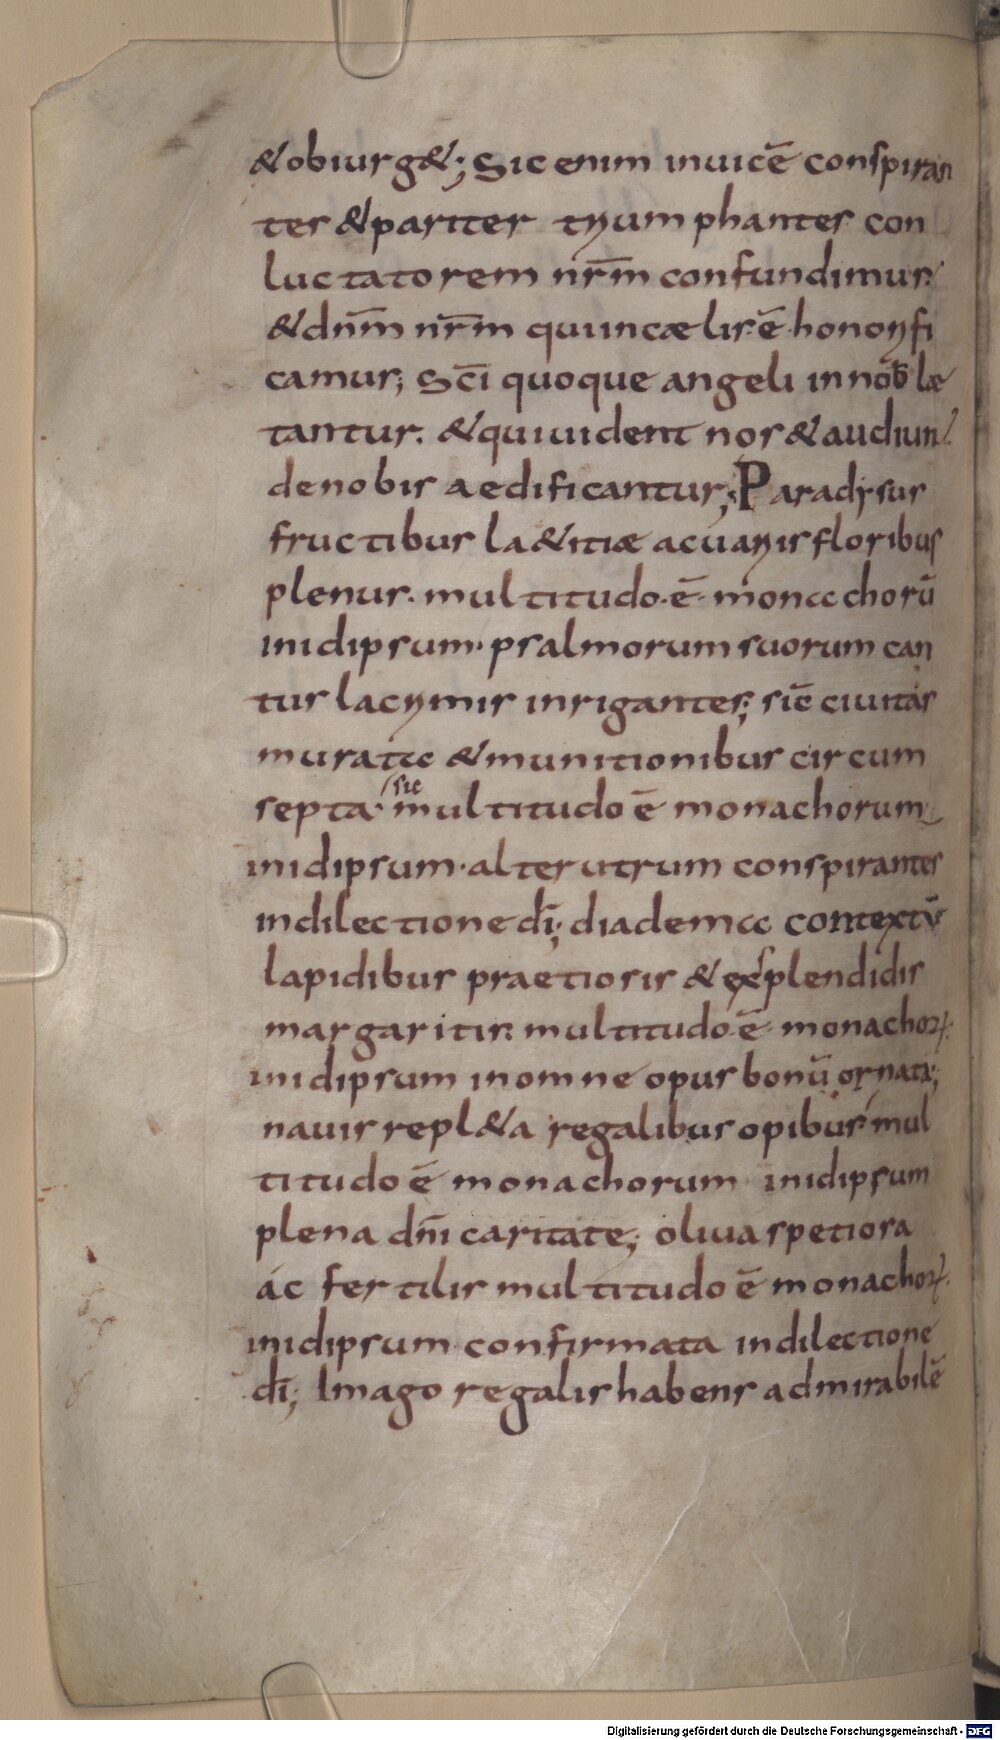 &obiurg&; Sic enim inuicē conspiran
tes &pariter tryumphantes con
luctatorem nr̄m confundimur.
&dnm̄ nr̄m quiincælis ē honorifi
camus; Sc̄i quoque angeli innob̄ læ
tantur. &quiuident nos &audiun
denobis aedificantur; Paradysus
fructibus la&itiæ acuariis floribus
plenus. multitudo ē monachorū
inidipsum. psalmorum suorum can
tus lacrymis inrigantes; sic̄ ciuitas
murata &munitionibus circum
septa. sic multitudo ē monachorum
inidipsum. alterutrum conspirantes
indilectione dī; diadema contextū
lapidibus praetiosis & exsplendidis
margaritis. multitudo ē monachoꝝ
inidipsum inomne opus bonū ornata;
nauis repl&a regalibus opibus mul
titudo ē monachorum inidipsum
plena dn̄i caritate; oliua spetiosa
ac fertilis multitudo ē monachoꝝ.
inidipsum confirmata indilectione
dī; Imago regalis habens admirabilē
Digitalisierung gefördert durch die Deutsche Forschungsgemeinschaft - DFG